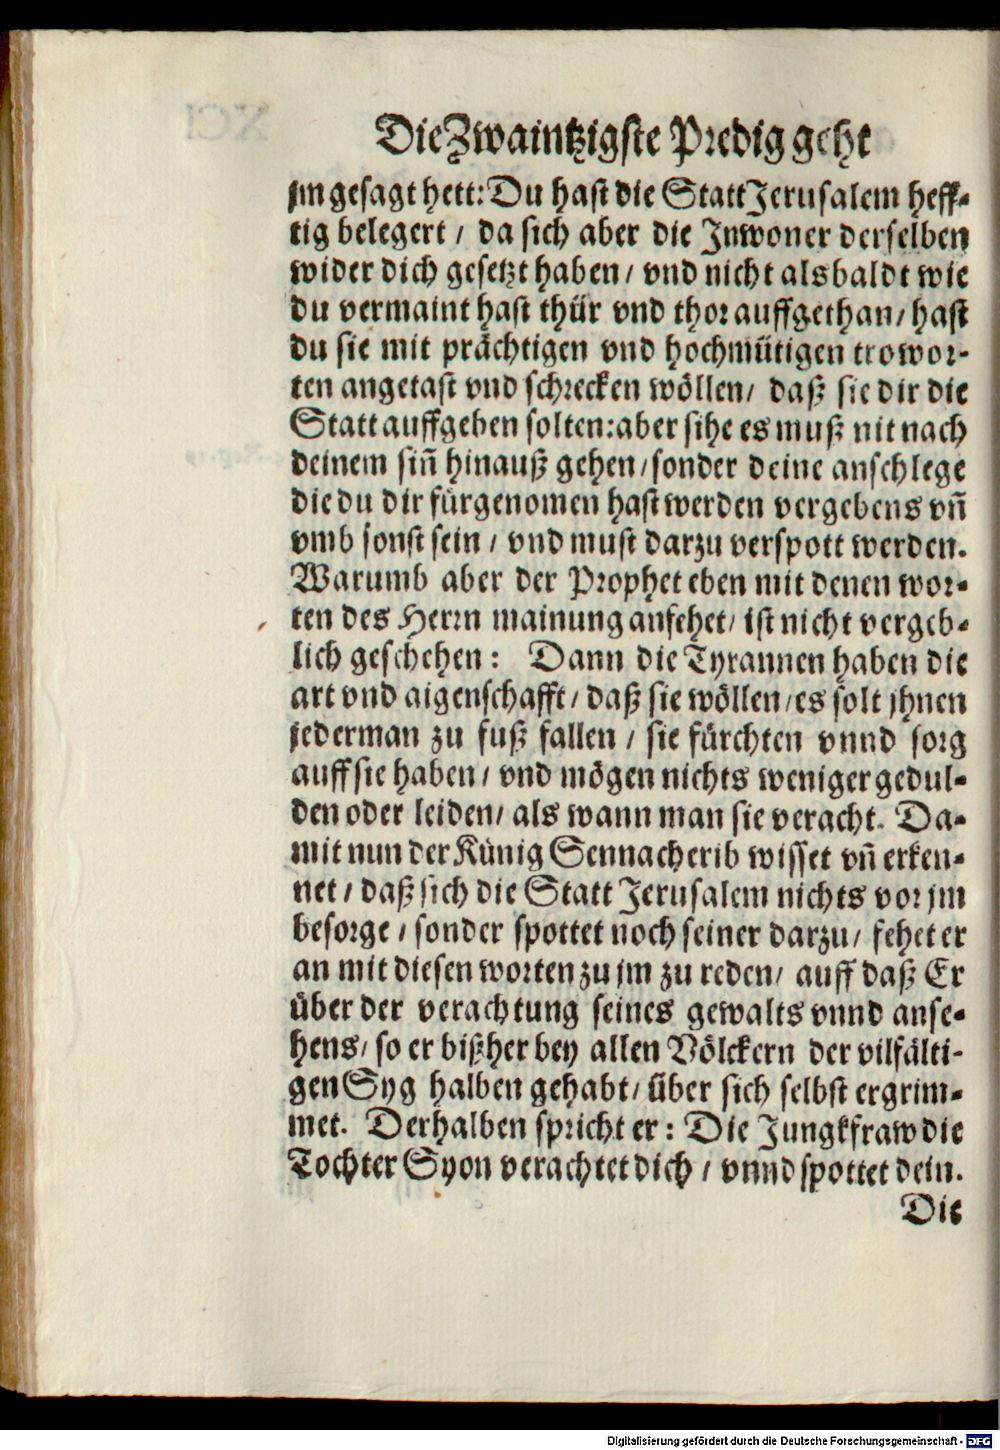 Die Zwaintzigste Predig geht
jm gesagt hett: Du hast die Statt Jerusalem heff-
tig belegert / da sich aber die Jnwoner derselben
wider dich gesetzt haben / vnd nicht alsbaldt wie
du vermaint hast thür vnd thor auffgethan / hast
du sie mit prächtigen vnd hochmütigen trowor-
ten angetast vnd schrecken wöllen / daß sie dir die
Statt auffgeben solten: aber sihe es muß nit nach
deinem siñ hinauß gehen / sonder deine anschlege
die du dir fürgenomen hast werden vergebens vñ
vmb sonst sein / vnd must darzu verspott werden.
Warumb aber der Prophet eben mit denen wor-
ten des Herrn mainung anfehet / ist nicht vergeb-
lich geschehen: Dann die Tyrannen haben die
art vnd aigenschafft / daß sie wöllen / es solt jhnen
jederman zu fuß fallen / sie fürchten vnnd sorg
auff sie haben / vnd mögen nichts weniger gedul-
den oder leiden / als wann man sie veracht. Da-
mit nun der Künig Sennacherib wisset vñ erken-
net / daß sich die Statt Jerusalem nichts vor jm
besorge / sonder spottet noch seiner darzu / fehet er
an mit diesen worten zu jm zu reden / auff daß Er
über der verachtung seines gewalts vnnd anse-
hens / so er bißher bey allen Völckern der vilfälti-
gen Syg halben gehabt / über sich selbst ergrim-
met. Derhalben spricht er: Die Jungkfraw die
Tochter Syon verachtet dich / vnnd spottet dein.
Die
Digitalisierung gefördert durch die Deutsche Forschungsgemeinschaft - DFG